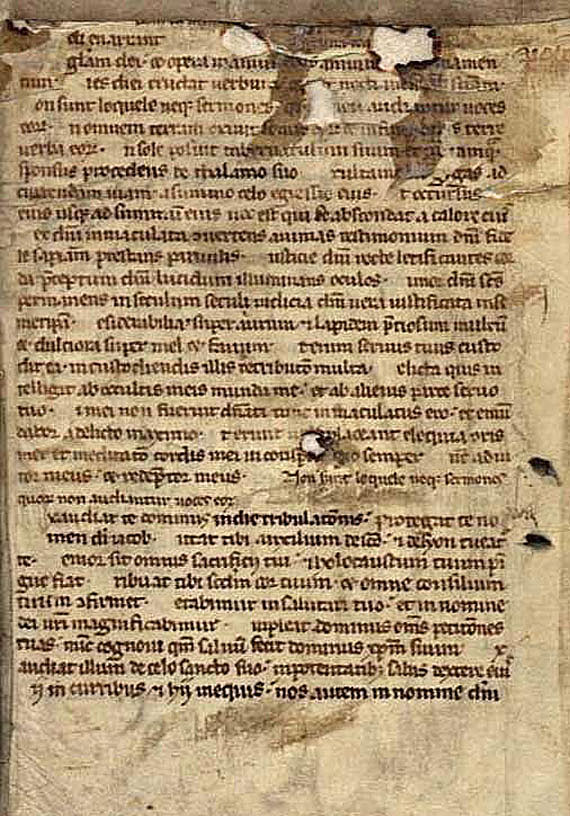 eli enarrant
glam dei · & opera manuum eius annun mamen
tum · ies diei eructat verbum & nox nocti
on sunt loquele neq; sermones · quor non audiantur voces
eor · n omnem terram exivit sonus eor & in fines orbis terre
verba eor · n sole posuit tabernaculum suum · et ip tamq
sponsus procedens de thalamo suo xultavit gas ad
currendam viam · a summo celo egressio eius · t occursus
eius usq; ad summũ eius nec est qui se abscondat a calore eius
ex dñi inmaculata convertens animas testimonium dñi fide
le sapiam prestans parvulis · usticie dñi recte letificantes cor
da p̃ceptum dñi lucidum illuminans oculos · imor dñi scs
permanens in seculum seculi iudicia dñi vera iustificata in se
metip̃a · esiderabilia super aurum & lapidem p̃ciosum multũ
& dulciora super mel & favum · tenim servus tuus custo
dit ea · in custodiendis illis retributio multa · elicta quis in
telligit ab occultis meis munda me · et ab alienis parce servo
tuo · i mei non fuerint dñati tunc inmaculatus ero · et emũ
dabor a delicto maximo · t erunt ut complaceant eloquia oris
mei et meditatio cordis mei in conspectu tuo semper ñe adiu
tor meus · & redẽptor meus · Non sunt loquele neq; sermones
quor non audiantur voces eor
xaudiat te dominus in die tribulatõnis · protegat te no
men di iacob · ittat tibi auxilium de sc̃o · & de syon tueat
te · emor sit omnis sacrificii tui · & holocaustum tuum pi
gue fiat · ribuat tibi scdm cor tuum · & omne consilium
tuũm cfirmet · etabimur in salutari tuo · et in nomine
dei nr̃i magnificabimur · impleat dominus om̃s petitiones
tuas · nũc cognovi qm̃ salvũ fecit dominus xp̃m suum x
audiat illum de celo sancto suo · in potentatib; salus dextere eiꝰ
ii in curribus & hii in equis · nos autem in nomine dñi